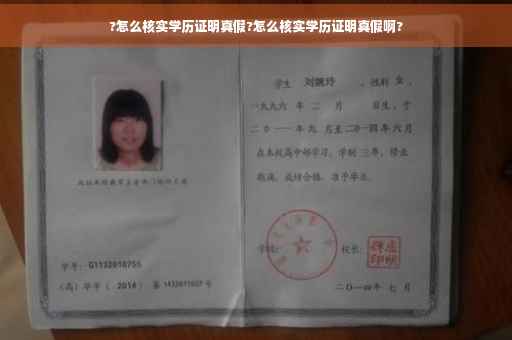 ?怎么核实学历证明真假?怎么核实学历证明真假啊?
学生 刘婉玲 ，性别 女 ，
一九九六 年 二 月 日生，于
二〇一一 年九 月至二〇一四年 六月
在本校高中部学习，学制 三年，修业
期满，成绩合格，准予毕业。
学号： G1132010755
（高）毕字（ 2014 ）第 1432011007 号
学校：
校长：
二〇一四年 七 月